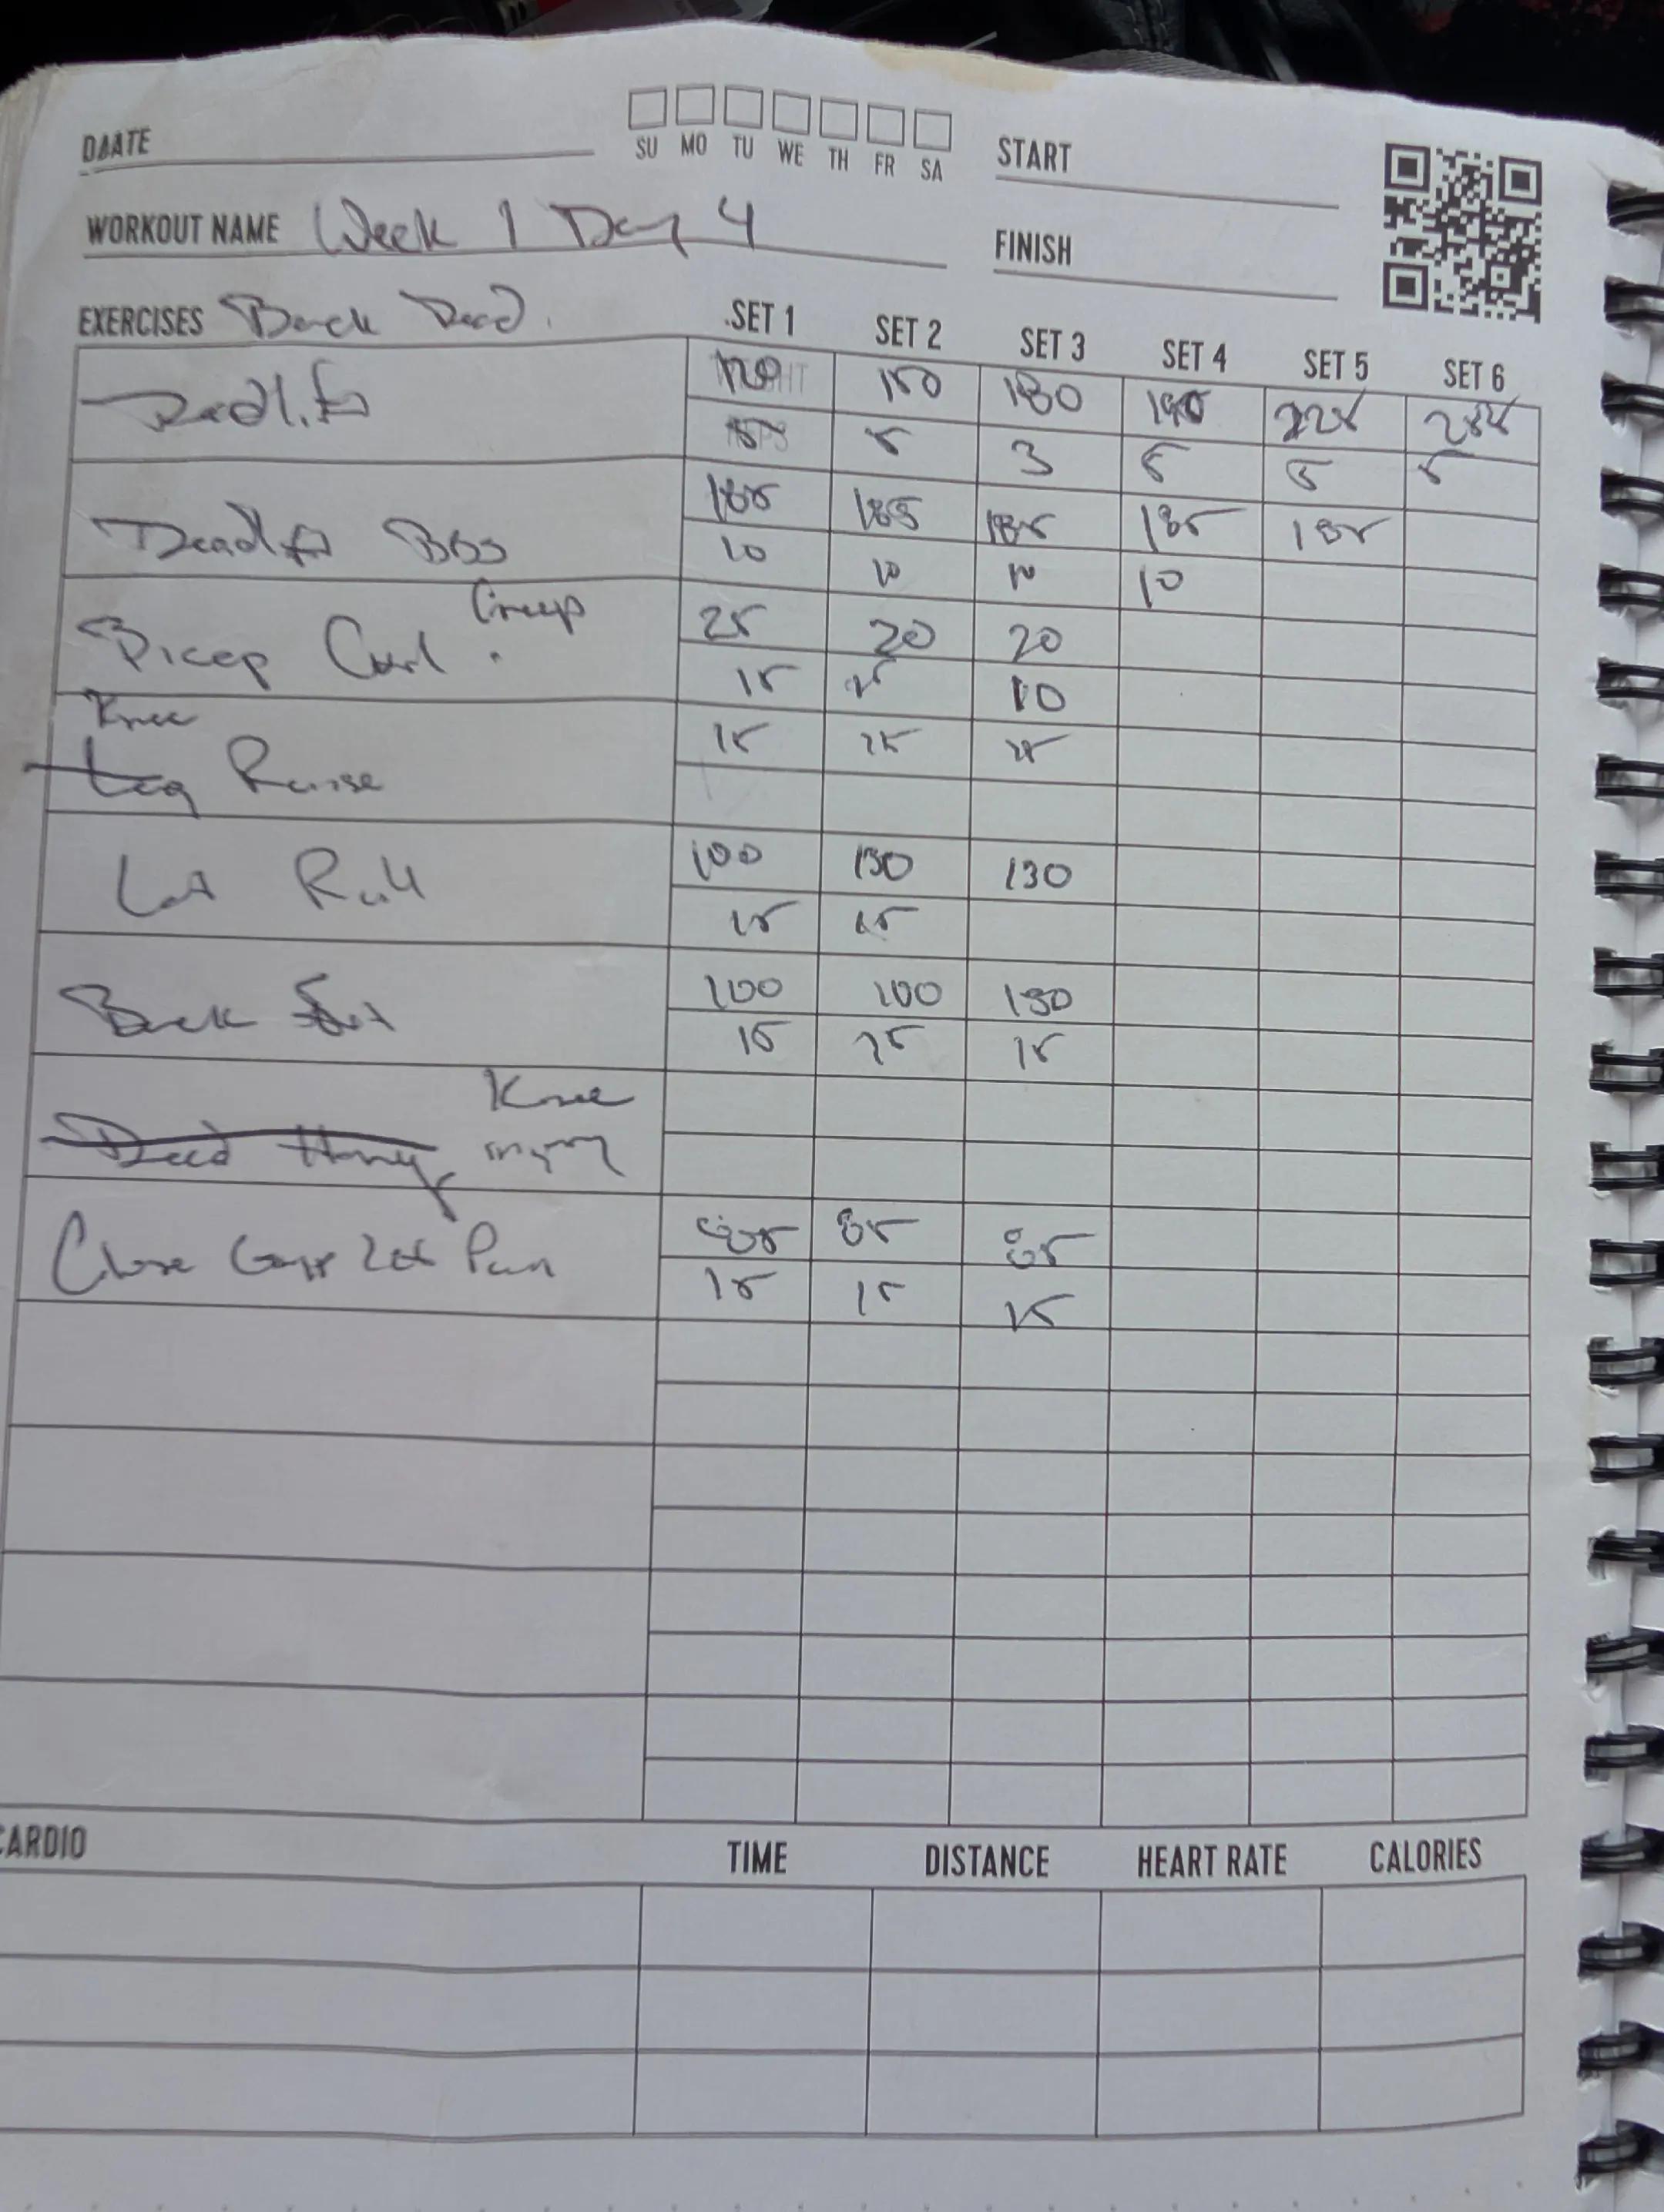 DAATE
SU MO TU WE TH FR SA
START
WORKOUT NAME Week 1 Day 4
FINISH
EXERCISES Back Dead.
SET 1 SET 2 SET 3 SET 4 SET 5 SET 6
Deadlift
120 150 180 195 225 255
5 3 5 5 5
Deadlift BBB
185 185 185 185 185
10 10 10 10
Bicep Curl
25 20 20
15 15 10
Knee
Leg Raise
15 15 15
Lat Pull
100 130 130
15 15
Back Ext
100 100 130
15 15 15
Dead Hang Knee
injury
Close Lat
85 85 85
15 15 15
CARDIO TIME DISTANCE HEART RATE CALORIES